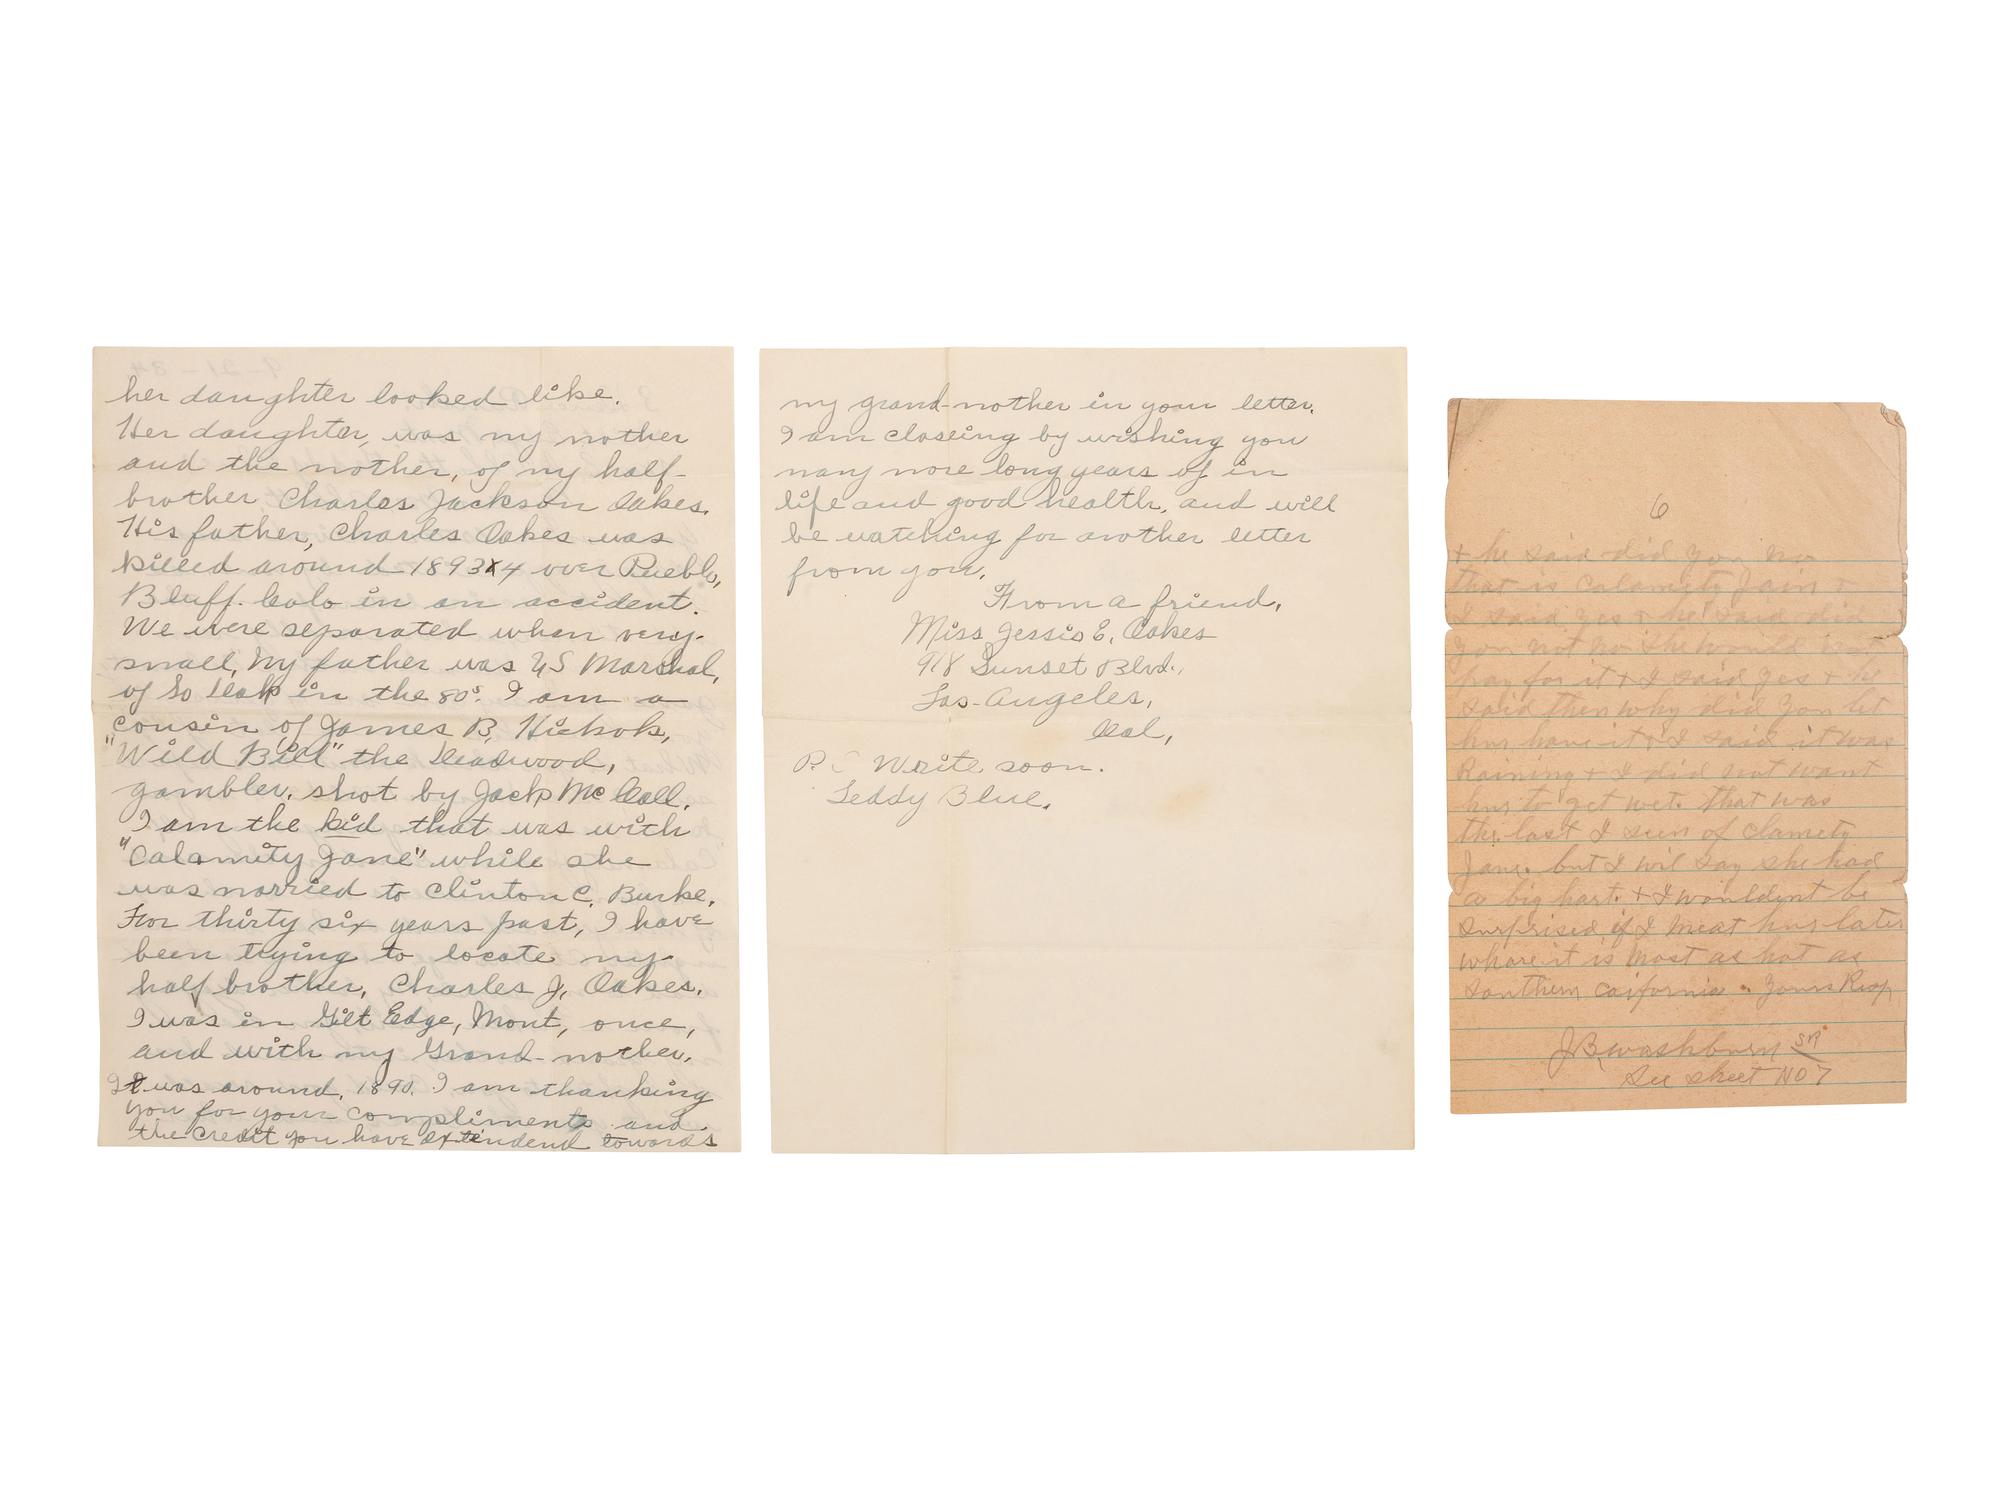 her daughter looked like.
Her daughter, was my nother
and the nother, of my half-
brother Charles Jackson Oakes.
His father, Charles Oakes was
killed around 1893x4 over Pueblo,
Bluff. Colo in an accident.
We were separated when very
small, My father was US Marshal,
of So in the 80s. I am a
cousin of James B. Hickok,
"Wild Bill" the Deadwood,
gambler, shot by Jack McCall.
I am the kid that was with
"Calamity Jane" while she
was narried to Clinton C. Burke.
For thirty six years past, I have
been trying to locate my
half brother, Charles J. Oakes.
I was in Gilt Edge, Mont, once,
and with my Grand-nother.
It was around, 1890. I am thanking
you for your compliments and
the credit you have extendend towards
my grand-nother in your letter.
I am closeing by wishing you
nany nore long years of in
life and good health, and will
be watching for another letter
from you.
From a friend,
Miss Jessie E. Oakes
918 Sunset Blvd.,
Los-Angeles,
Cal,
P.S Write soon.
Teddy Blue.
6
+ he said did you no
that is Calamity Jain +
I said yes + he said did
you not no she would not
pay for it + I said yes + he
said then why did you let
hur have it + I said it was
Raining + I did not want
hur to get wet. that was
the last I seen of Clamety
Jane. but I wil say she had
a big hart. + I wouldent be
surprised if I meat hur later
whare it is most as hot as
Southern California. Yours Resp
J B Washburn SR
See sheet NO 7